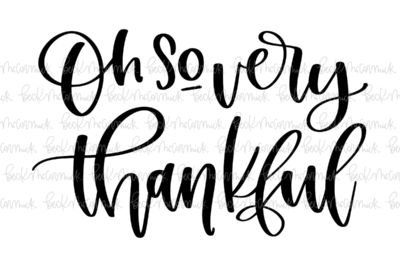 Oh so very
thankful